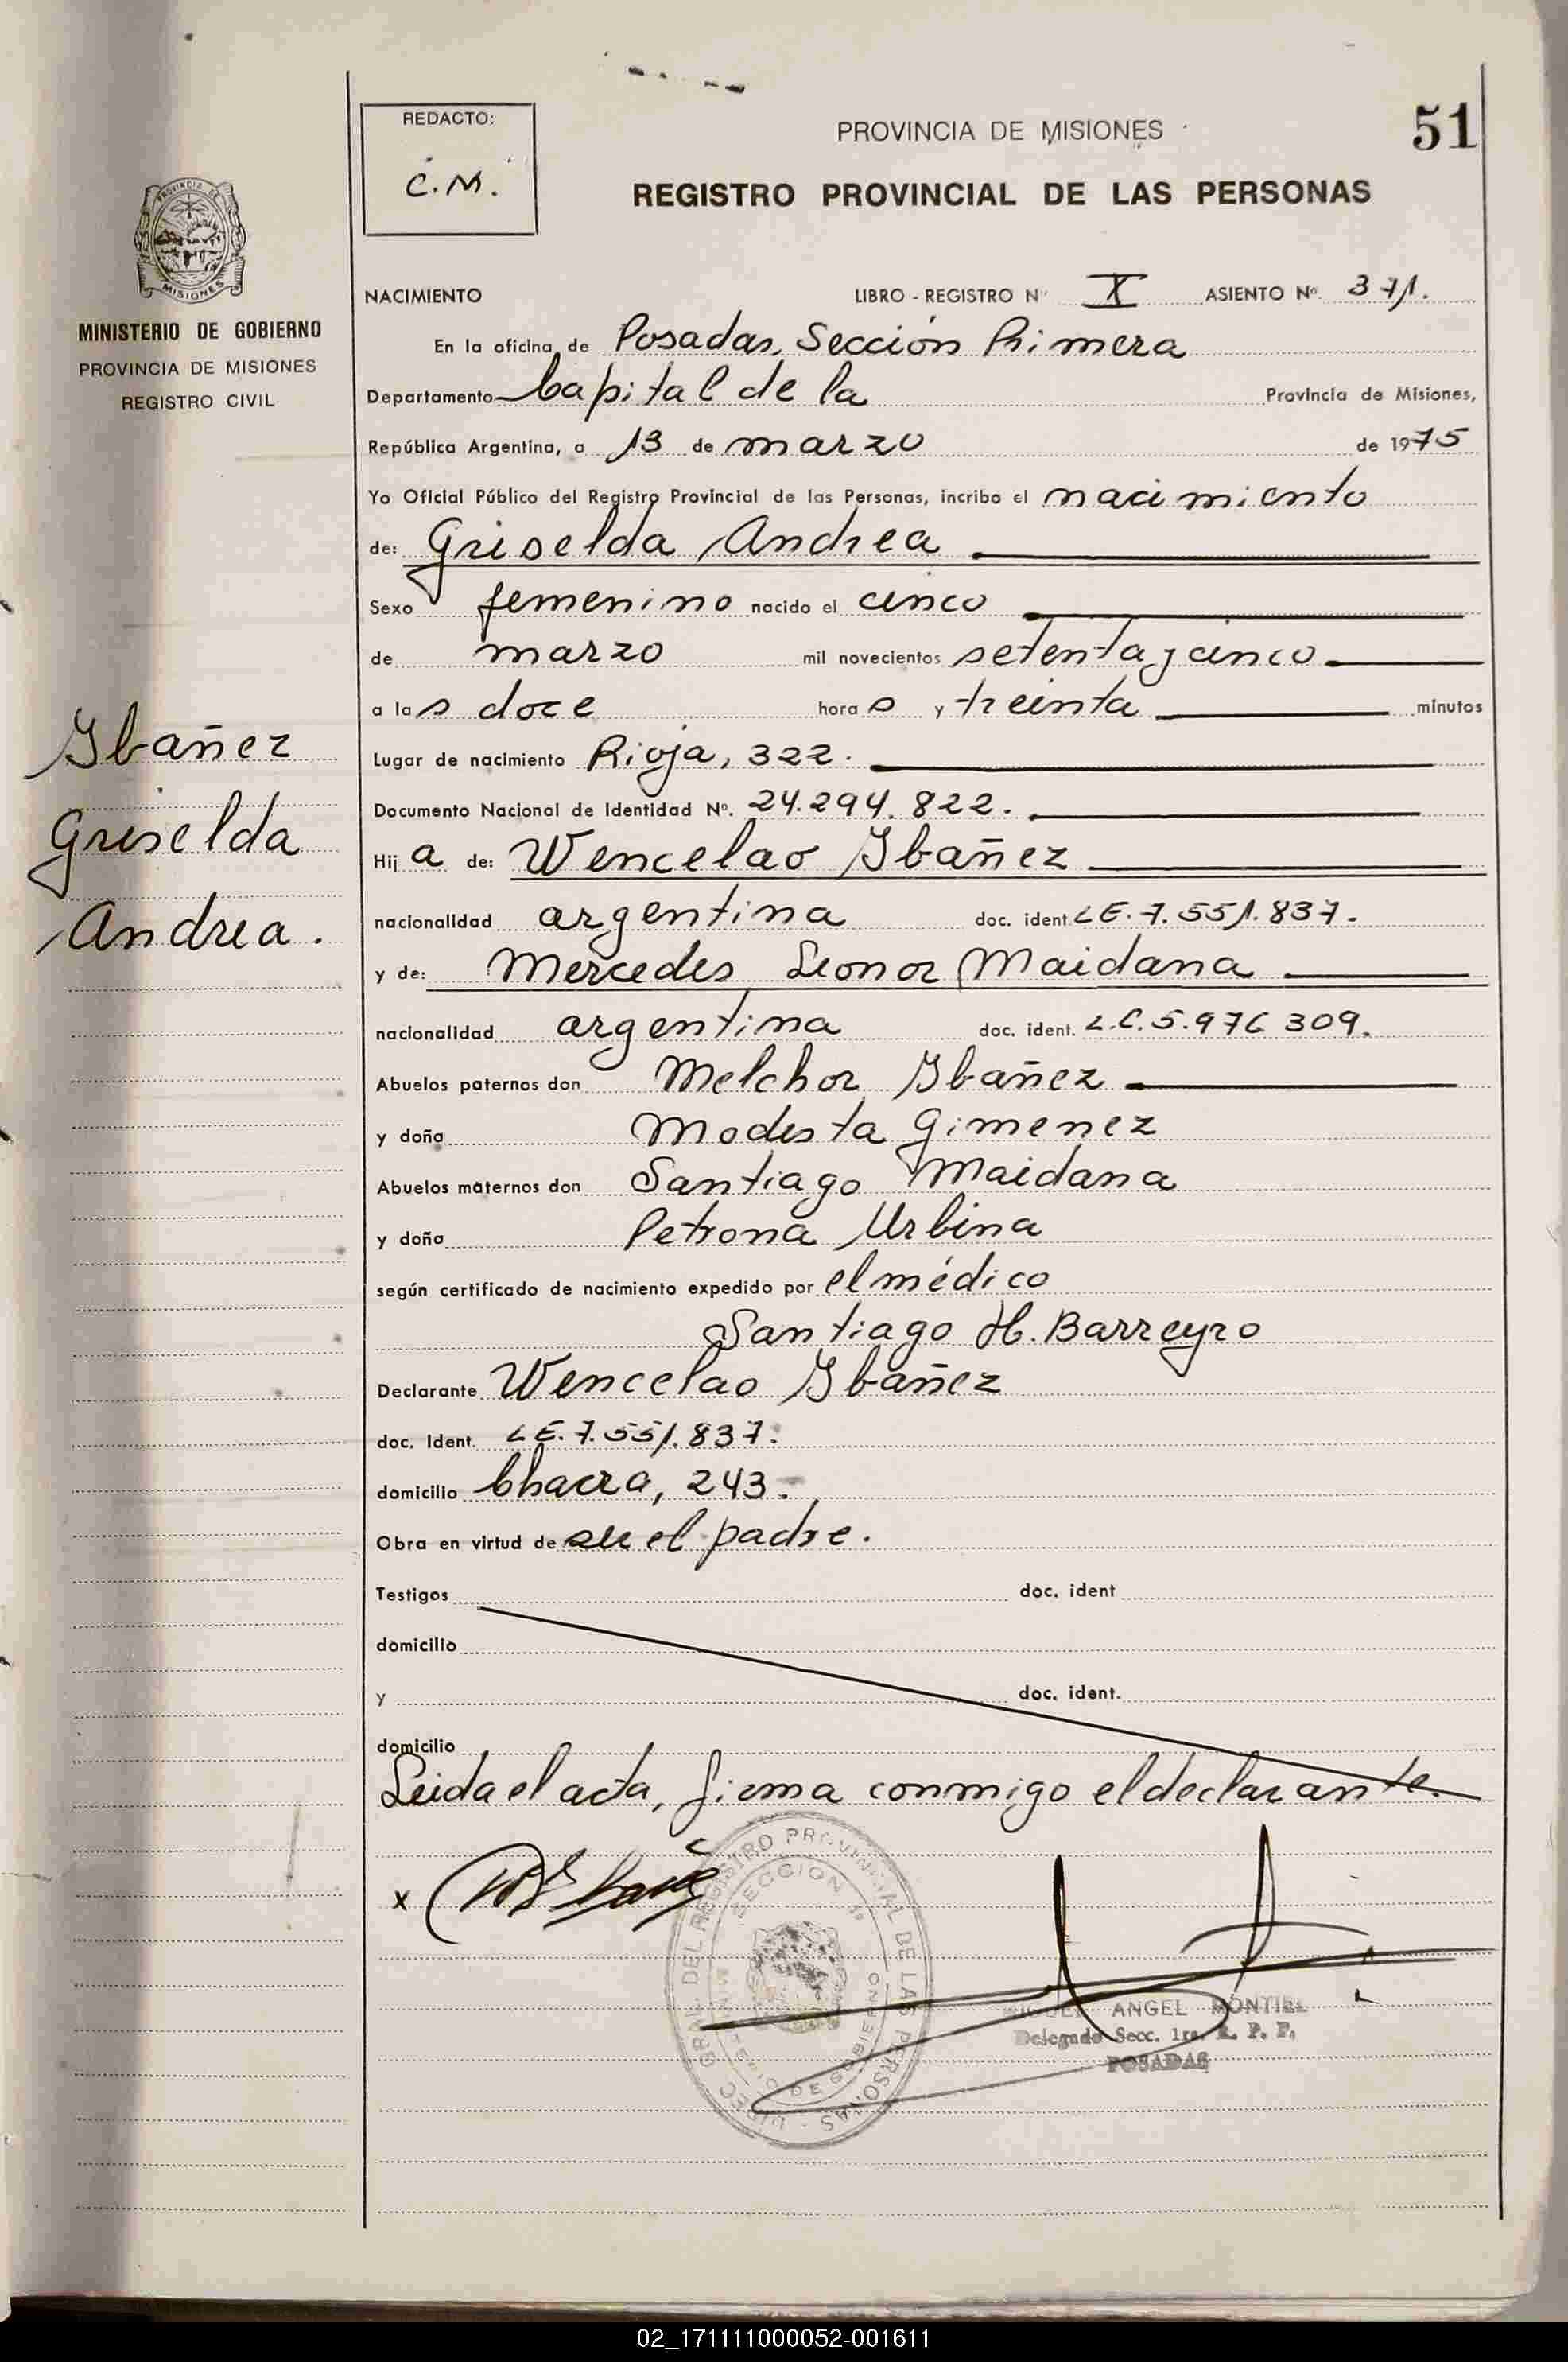 51
REDACTO:
C.M.
PROVINCIA DE MISIONES
REGISTRO PROVINCIAL DE LAS PERSONAS
PROVINCIA DE
MISIONES
MINISTERIO DE GOBIERNO
PROVINCIA DE MISIONES
REGISTRO CIVIL
Ibañez
Griselda
Andrea.
NACIMIENTO LIBRO - REGISTRO Nº X ASIENTO Nº 371.
En la oficina de Posadas, Sección Primera
Departamento Capital de la Provincia de Misiones,
República Argentina, a 13 de marzo de 1975
Yo Oficial Público del Registro Provincial de las Personas, incribo el nacimiento
de: Griselda Andrea
Sexo femenino nacido el cinco
de marzo mil novecientos setenta y cinco
a las doce horas y treinta minutos
Lugar de nacimiento Rioja, 322.
Documento Nacional de Identidad Nº. 24.294.822.
Hija de: Wencelao Ibañez
nacionalidad argentina doc. ident. LE. 7.551.837.
y de: Mercedes Leonor Maidana
nacionalidad argentina doc. ident. L.C. 5.976.309.
Abuelos paternos don Melchor Ibañez
y doña Modesta Gimenez
Abuelos maternos don Santiago Maidana
y doña Petrona Urbina
según certificado de nacimiento expedido por el médico
Santiago H. Barreyro
Declarante Wencelao Ibañez
doc. Ident. LE. 7.551.837.
domicilio Chacra, 243.
Obra en virtud de ser el padre.
Testigos doc. ident
domicilio
y doc. ident.
domicilio
Leida el acta, firma conmigo el declarante.
x
DIREC. GRAL. DEL REGISTRO PROVINCIAL DE LAS PERSONAS
SECCION 1ª
MINISTERIO DE GOBIERNO
MIGUEL ANGEL MONTIEL
Delegado Secc. 1ra. R. P. P.
POSADAS
02_171111000052-001611